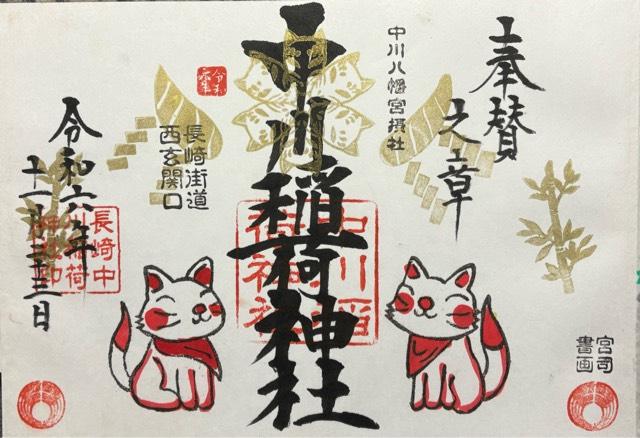 奉賛
之章
中川八幡宮摂社
中川稲荷神社
中川稲
荷神社
令和
六年
長崎街道
西玄関口
令和六年
十一月二十三日
長崎中
川稲荷
神社印
宮司
書画